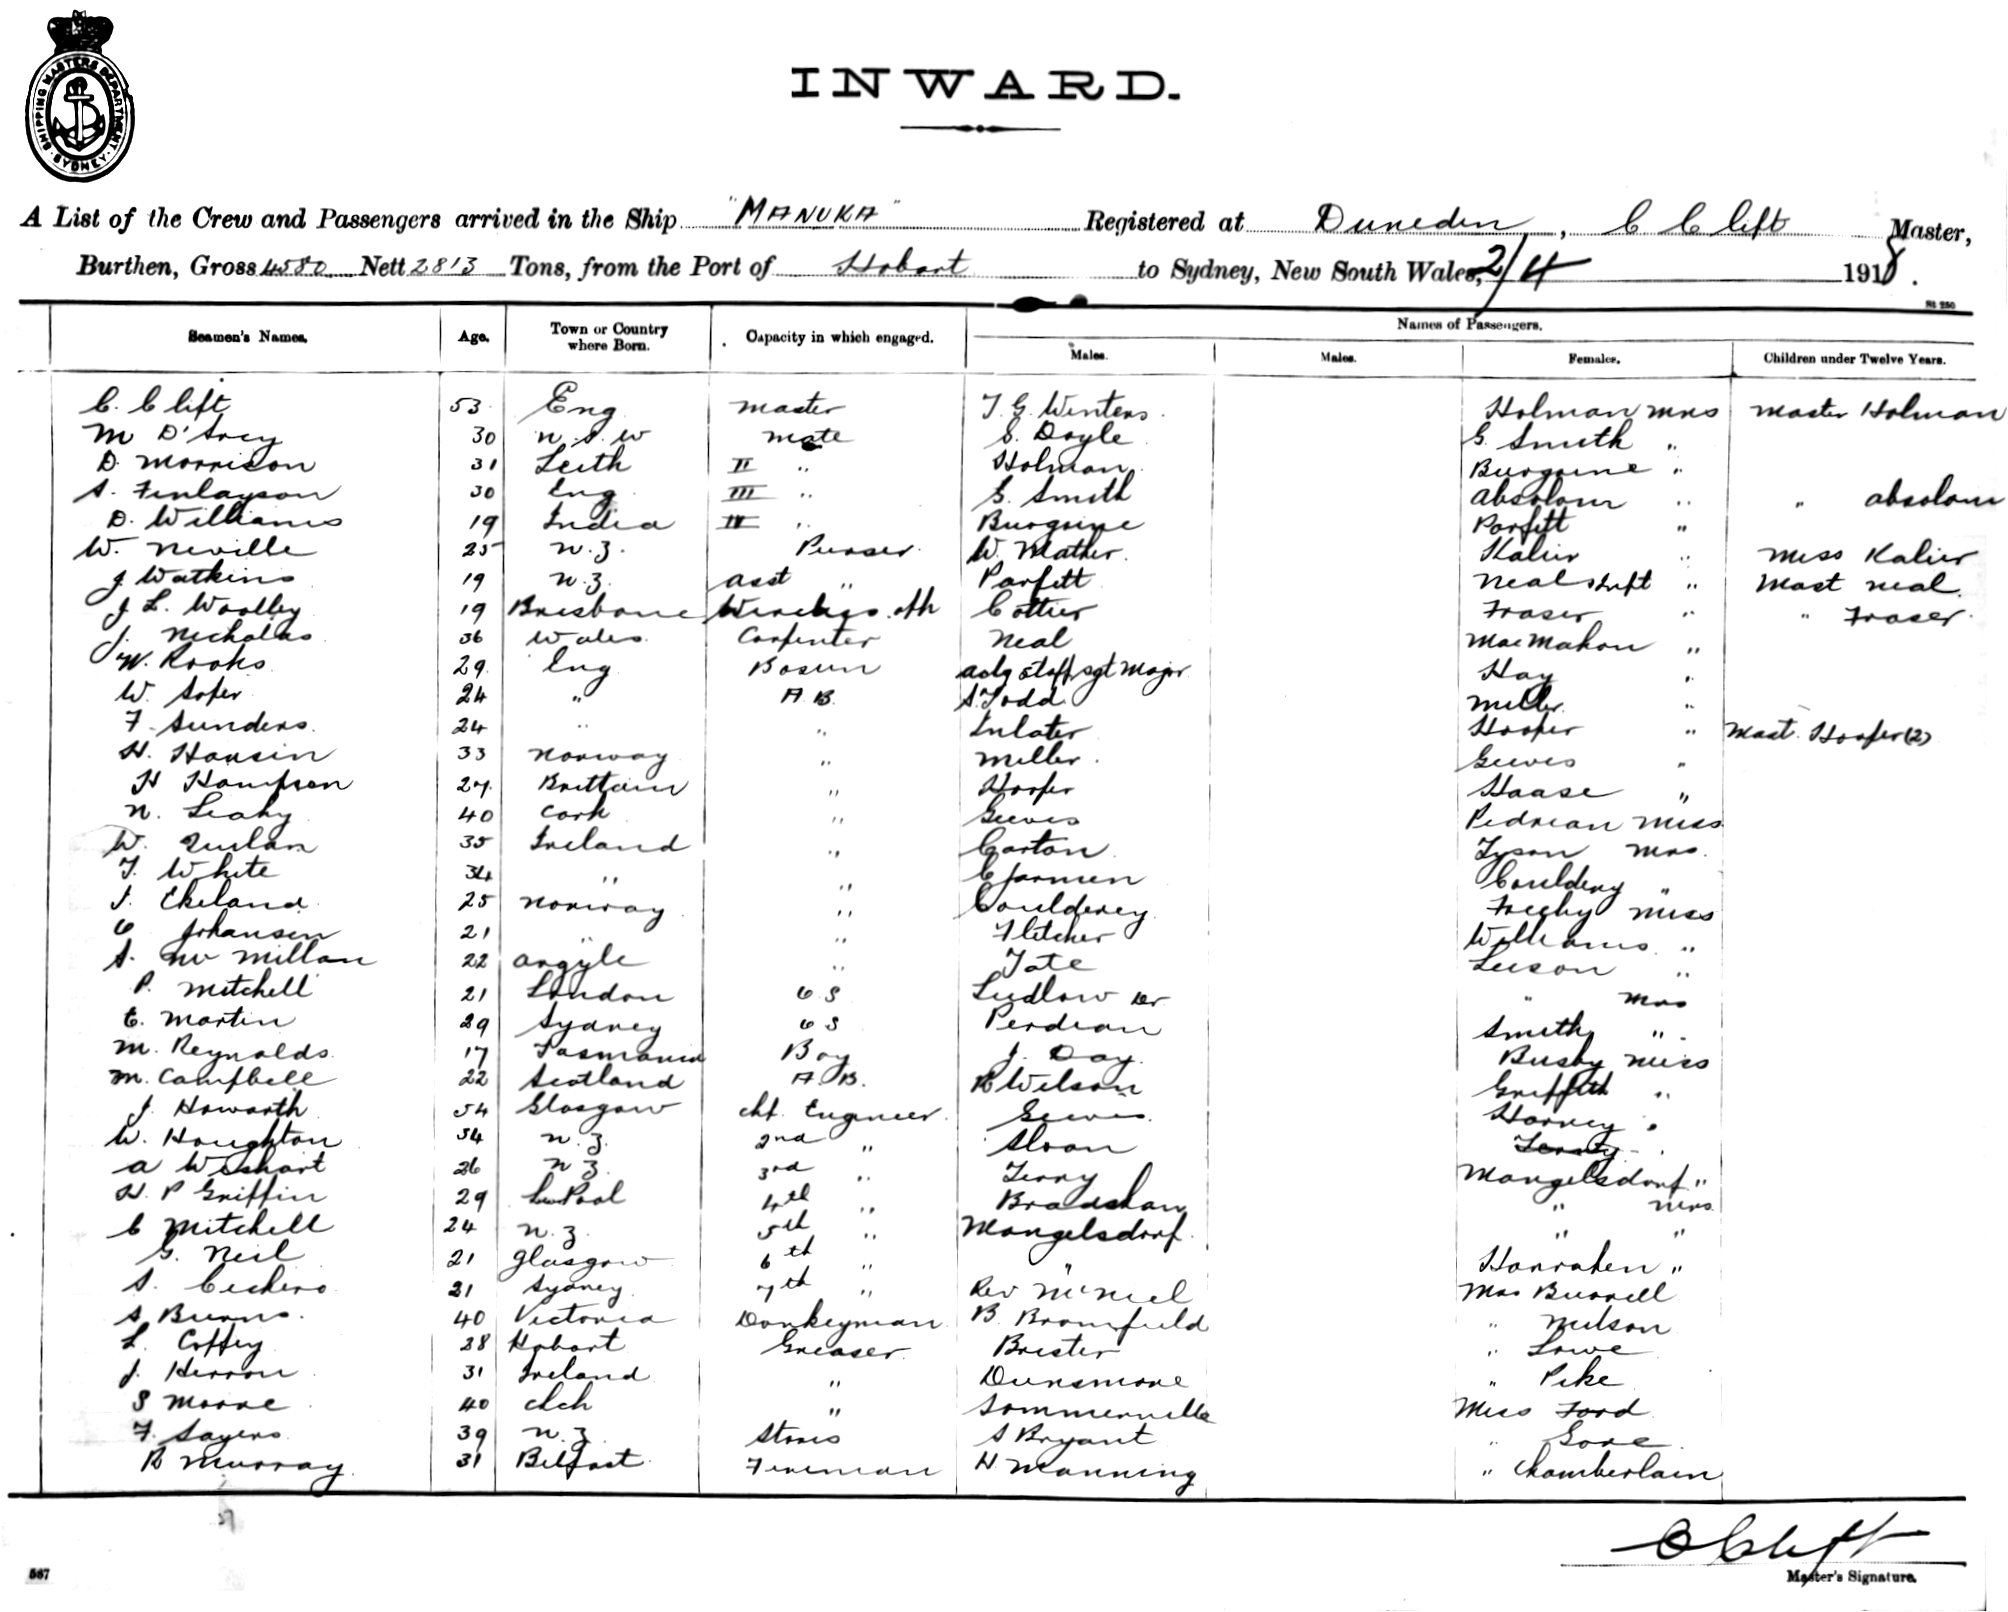 SHIPPING MASTERS DEPARTMENT. SYDNEY.
INWARD.
A List of the Crew and Passengers arrived in the Ship "MANUKA" Registered at Duneden, C Clift Master,
Burthen, Gross 4580 Nett 2813 Tons, from the Port of Hobart to Sydney, New South Wales, 2/4 1918.
St 250
Seamen's Names. Age. Town or Country where Born. Capacity in which engaged. Names of Passengers.
Males. Males. Females. Children under Twelve Years.
C. Clift 53 Eng master T. G. Winters. Holman mrs master Holman
M D'Arcy 30 N.S.W mate S. Doyle G. Smith "
D. Morrison 31 Leith II " Holman Burgoine "
A. Finlayson 30 Eng III " G. Smith Absolom " " absolom
D. Williams 19 India IV " Burgoine Parfett "
W. Neville 25 N.Z. Purser W. Mather. Kalier " miss Kalier
J Watkins 19 N.Z. asst " Parfett Neal " Mast neal
J L. Woolley 19 Brisbane Wireless oth Cottier Fraser " " Fraser
J. Nicholas 36 Wales Carpenter Neal MacMahon "
W. Rooks 29 Eng Bosun actg staff sgt Major Hay "
W. Soper 24 " A.B. A. Todd Miller "
F. Sunders 24 " " Hooper " Mast. Hooper (2)
H. Hansin 33 Norway " Miller. Geeves "
H 27 Brittain " Hooper Haase "
N. Leahy 40 Cork " Geeves Pedrean Miss
W. Quilan 35 Ireland " Garton Tyson Mrs.
T. White 34 " " C Jarmen Couldery "
J. Ekeland 25 Norway " Coulderey Miss
O Johansen 21 " " Fletcher Williams "
A. Mc Millan 22 Argyle " Tate Leeson "
P. Mitchell 21 London O S Ludlow Dr " Mrs
E. Martin 29 Sydney O S Perdean Smith "
M. Reynolds 17 Tasmania Boy J. Day Busby Miss
M. Campbell 22 Scotland A.B. R Wilson Griffith "
J. Howarth 54 Glasgow chf. Engineer Geeves Harvey "
W. Houghton 34 N.Z. 2nd " Sloan
A Wishart 26 N Z. 3rd " Terry Mangelsdorf "
H. P Griffin 29 L'Pool 4th " Bradshaw " Mrs
C Mitchell 24 N.Z. 5th " Mangelsdorf " "
G. Neil 21 Glasgow 6th " " Hanrahen "
A. 21 Sydney 7th " Rev McNeil Mrs Burrell
A Burns. 40 Victoria Donkeyman B. Bromfield " Neilson
L. Coffey 28 Hobart Greaser Brister " Lowe
J. Herron 31 Ireland " Dunsmore " Pike
S Moore 40 chch " Sommerville Miss Ford
F. Sayers 39 N.Z. Stores A Bryant " Gore
R Murray 31 Belfast Fireman H Manning " Chamberlain
C Clift
Master's Signature.
567